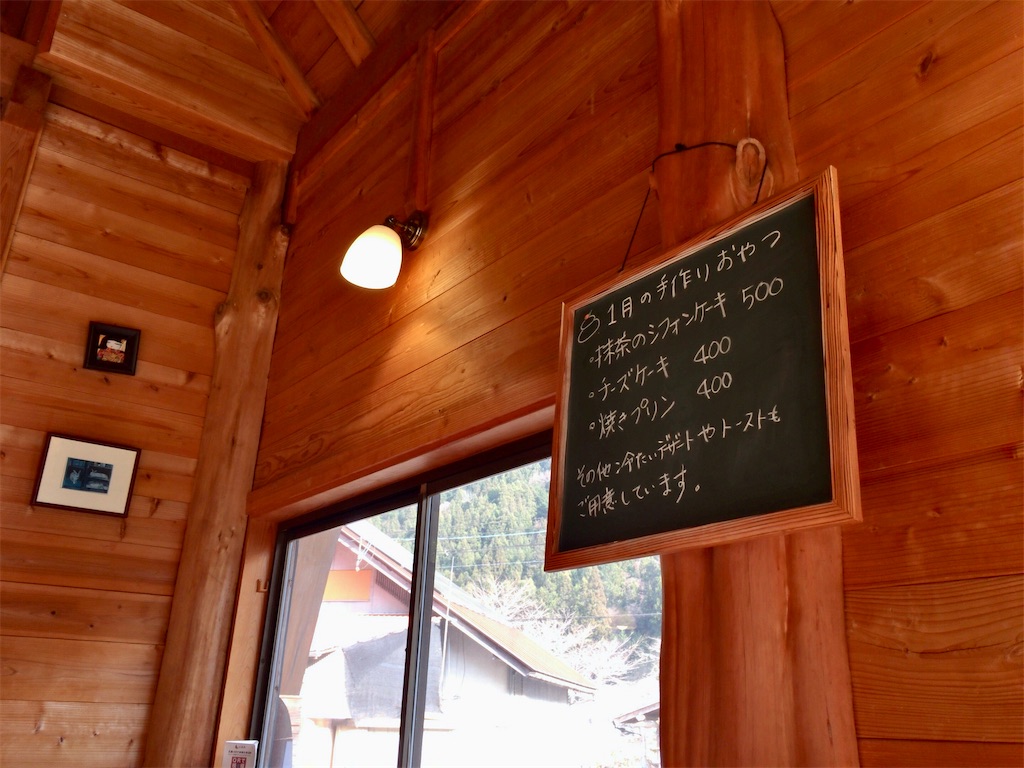 1月の手作りおやつ
・抹茶のシフォンケーキ 500
・チーズケーキ 400
・焼きプリン 400
その他冷たいデザートやトーストも
ご用意しています。